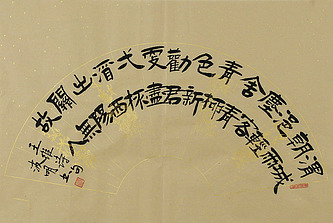 渭城
朝雨
浥輕
塵客
舍青
青柳
色新
勸君
更盡
弌杯
酒西
出陽
關無
故人
王維詩句